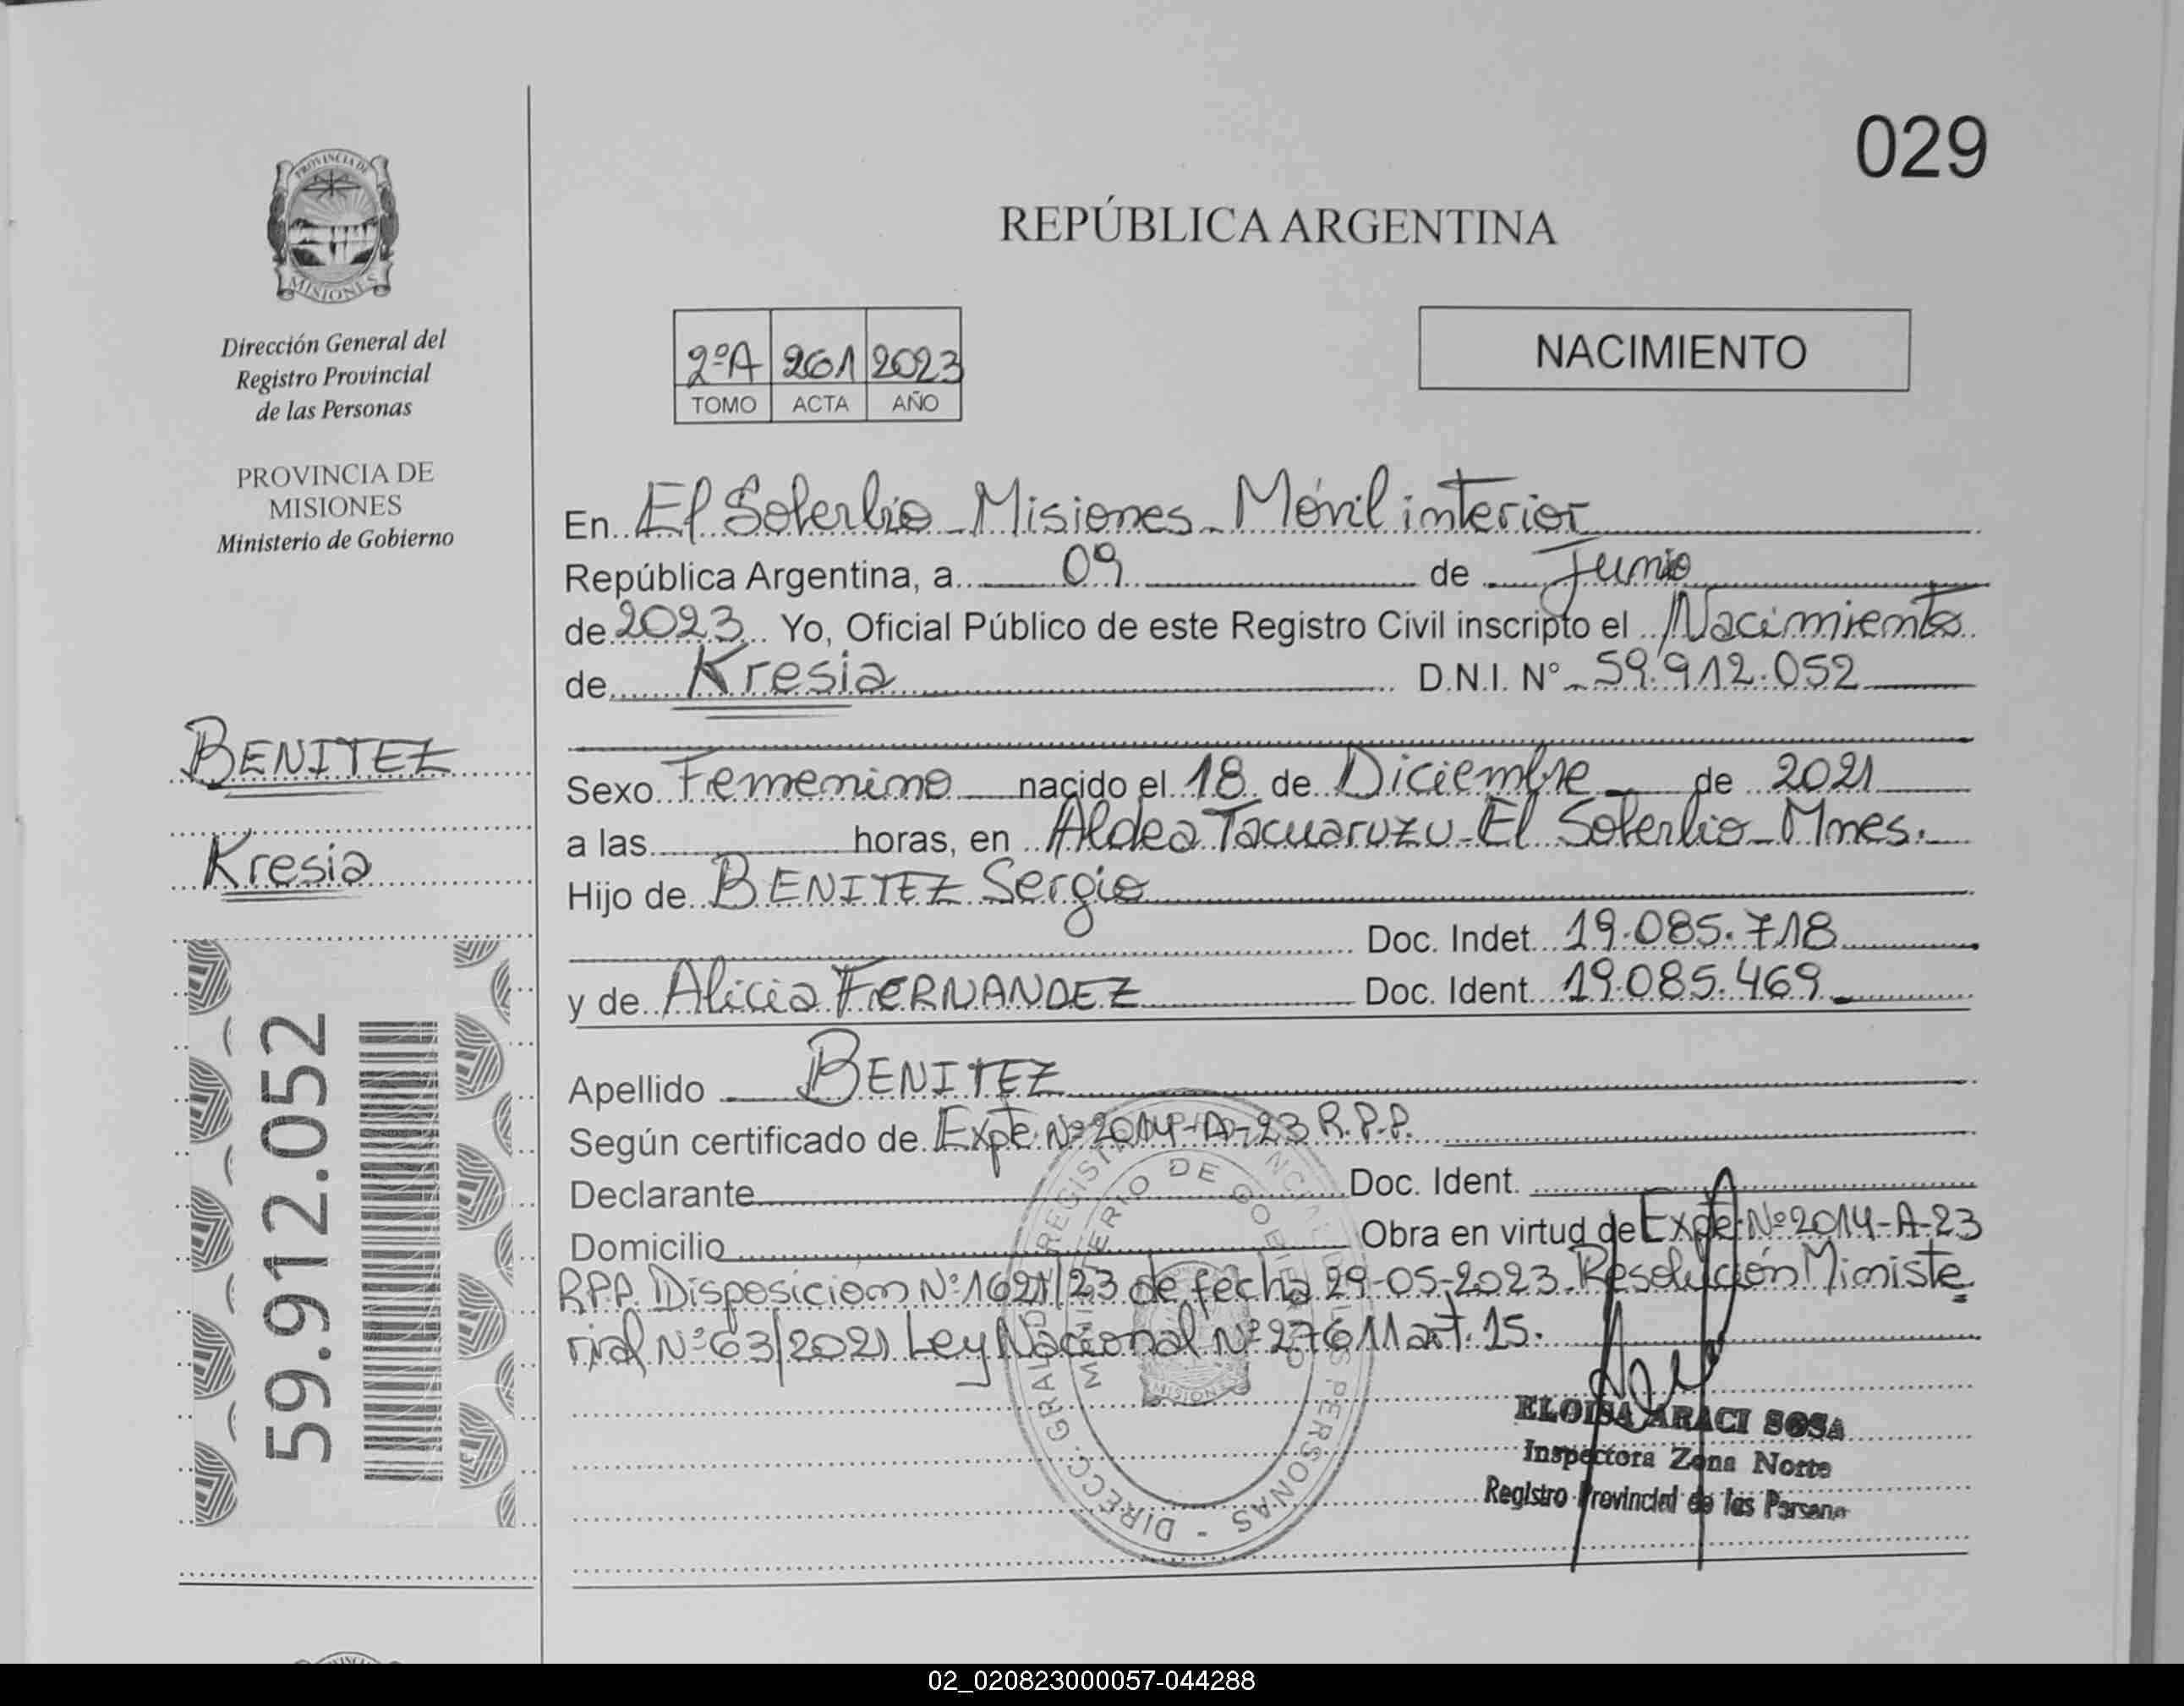 029
PROVINCIA DE
MISIONES
Dirección General del
Registro Provincial
de las Personas
PROVINCIA DE
MISIONES
Ministerio de Gobierno
BENITEZ
Kresia
59.912.052
REPÚBLICA ARGENTINA
2ºA 261 2023
TOMO ACTA AÑO
NACIMIENTO
En El Soberbio - Misiones - Móvil interior
República Argentina, a 09 de Junio
de 2023 Yo, Oficial Público de este Registro Civil inscripto el Nacimiento
de Kresia D.N.I. N° 59.912.052
Sexo Femenino nacido el 18 de Diciembre de 2021
a las horas, en Aldea Tacuaruzu - El Soberbio - Mnes.
Hijo de BENITEZ Sergio
Doc. Indet. 19.085.718
y de Alicia FERNANDEZ Doc. Ident. 19.085.469
Apellido BENITEZ
Según certificado de Expe. Nº 2014-A-23 R.P.P.
Declarante Doc. Ident.
Domicilio Obra en virtud de Expe. Nº 2014-A-23
RPP. Disposición Nº 1621/23 de fecha 29-05-2023. Resolución Ministe
rial Nº 63/2021 Ley Nacional Nº 27611 art. 15.
DIRECC. GRAL. DEL REGISTRO PROVINCIAL DE LAS PERSONAS -
MINISTERIO DE GOBIERNO
MISIONES
ELOISA ARACI SOSA
Inspectora Zona Norte
Registro Provincial de las Persona
02_020823000057-044288